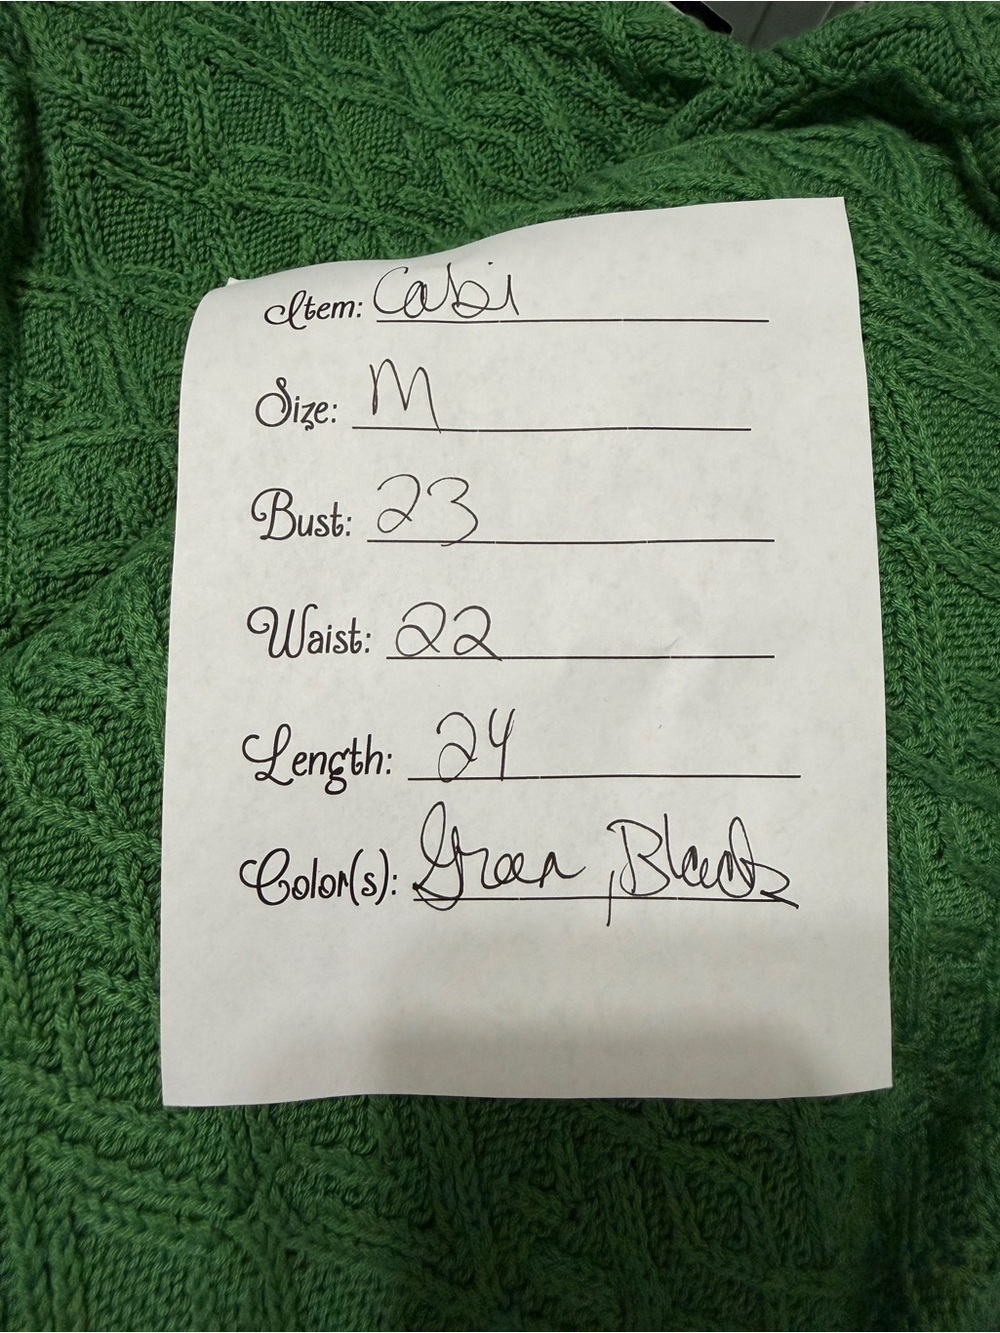 Item: Cabi
Size: M
Bust: 23
Waist: 22
Length: 24
Color(s): Green, Black